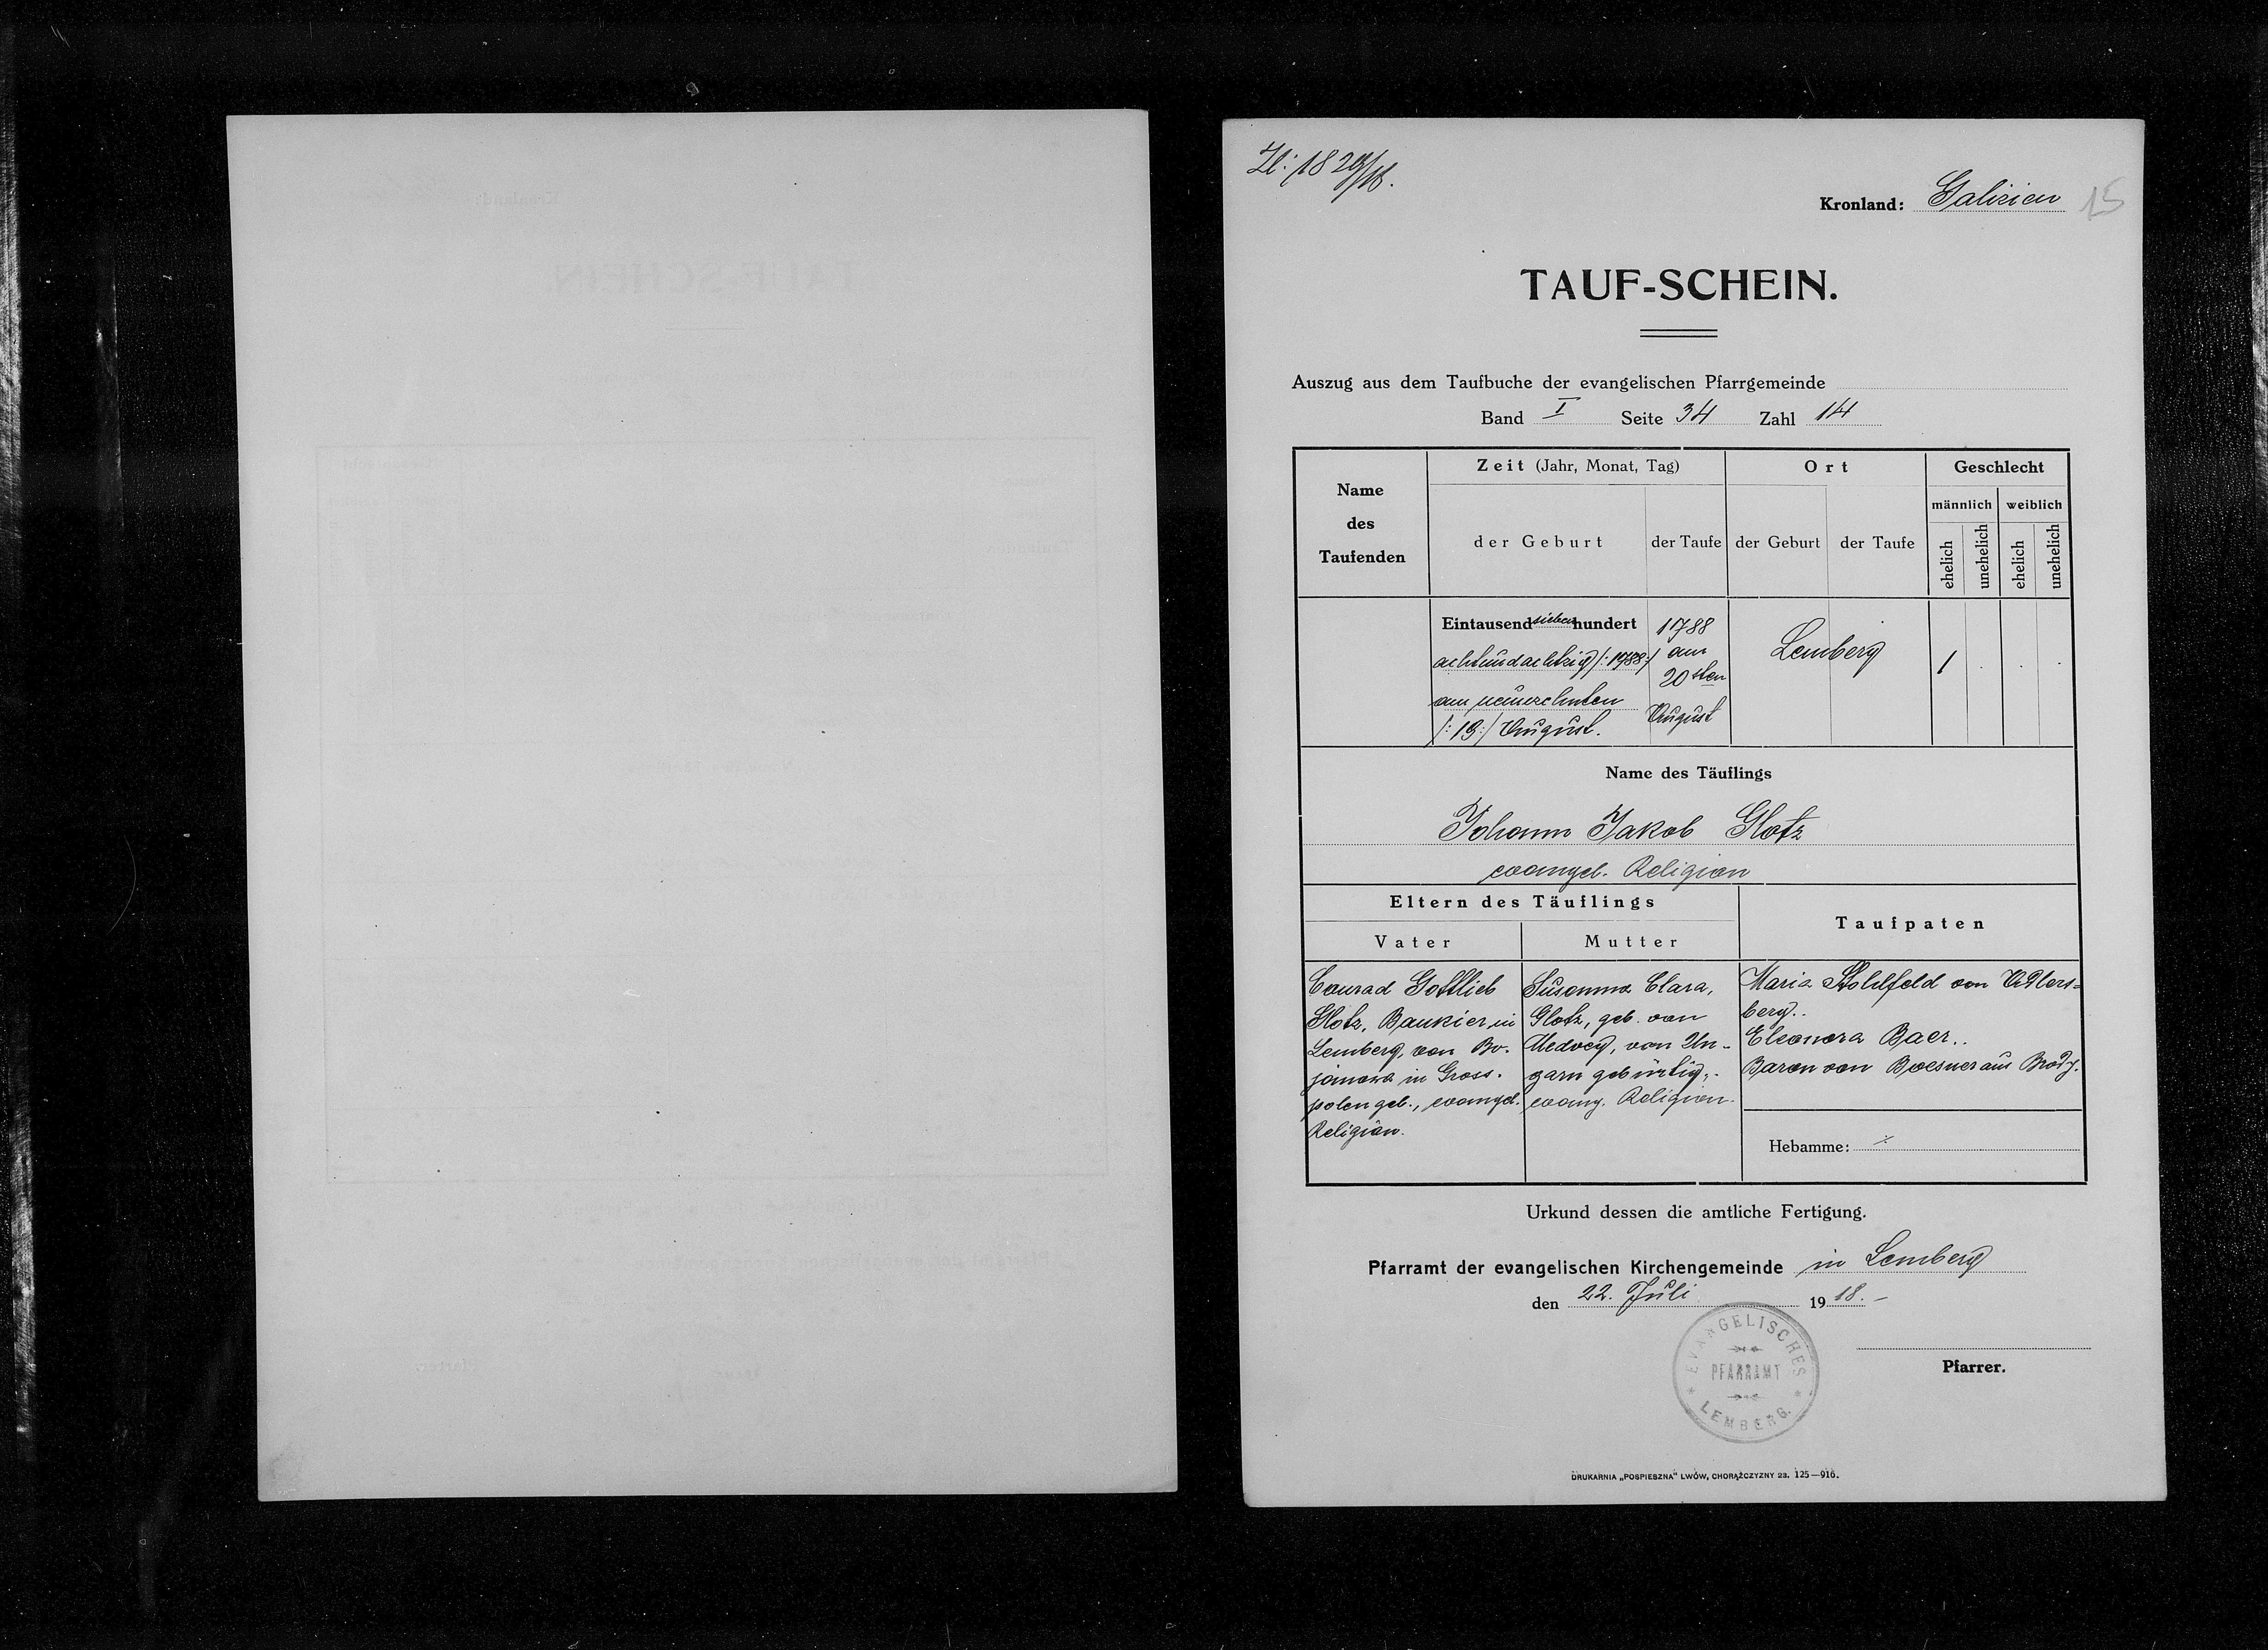 Zl: 1829/18.
Kronland: Galizien 15
TAUF-SCHEIN.
Auszug aus dem Taufbuche der evangelischen Pfarrgemeinde
Band I Seite 34 Zahl 14
Name des Taufenden
Zeit (Jahr, Monat, Tag)
der Geburt
der Taufe
Ort
der Geburt
der Taufe
Geschlecht
männlich
weiblich
ehelich
unehelich
ehelich
unehelich
Eintausend sieben hundert
achtundachtzig /:1788:/
am neunzehnten
/:19:/ August.
1788
am
20sten
August
Lemberg
1
Name des Täuflings
Johann Jakob Glotz
evangel. Religion
Eltern des Täuflings
Vater
Mutter
Taufpaten
Conrad Gottlieb
Glotz, Bankier in
Lemberg, von Bo-
janowa in Gross-
polen geb., evangel.
Religion.
Susanna Clara,
Glotz, geb. von
Medvey, von Un-
garn gebürtig,
evang. Religion.
Maria von Adlers=
berg..
Eleonora Baer..
Baron von Boesner aus Brody.
Hebamme: ÷
Urkund dessen die amtliche Fertigung.
Pfarramt der evangelischen Kirchengemeinde in Lemberg
den 22. Juli 1918.-
Pfarrer.
EVANGELISCHES
PFARRAMT
LEMBERG.
DRUKARNIA „POSPIESZNA" LWÓW, CHORĄŻCZYZNY 23. 125—916.